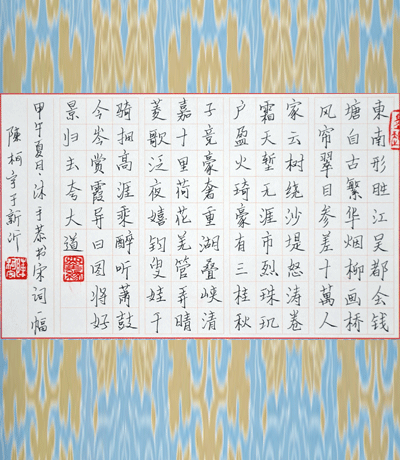 東南形胜江吴都会钱
塘自古繁华烟柳画桥
风帘翠目参差十萬人
家云树绕沙堤怒涛卷
霜天堑无涯市烈珠玑
户盈火琦豪有三桂秋
子竞豪奢重湖叠峡清
嘉十里荷花羌管弄晴
菱歌泛夜嬉钓叟娃千
骑拥高涯乘醉听萧鼓
今岑赏霞导日图将好
景归去夸大道
甲午夏日沐手恭书宋词一幅
陳柯宇于新沂